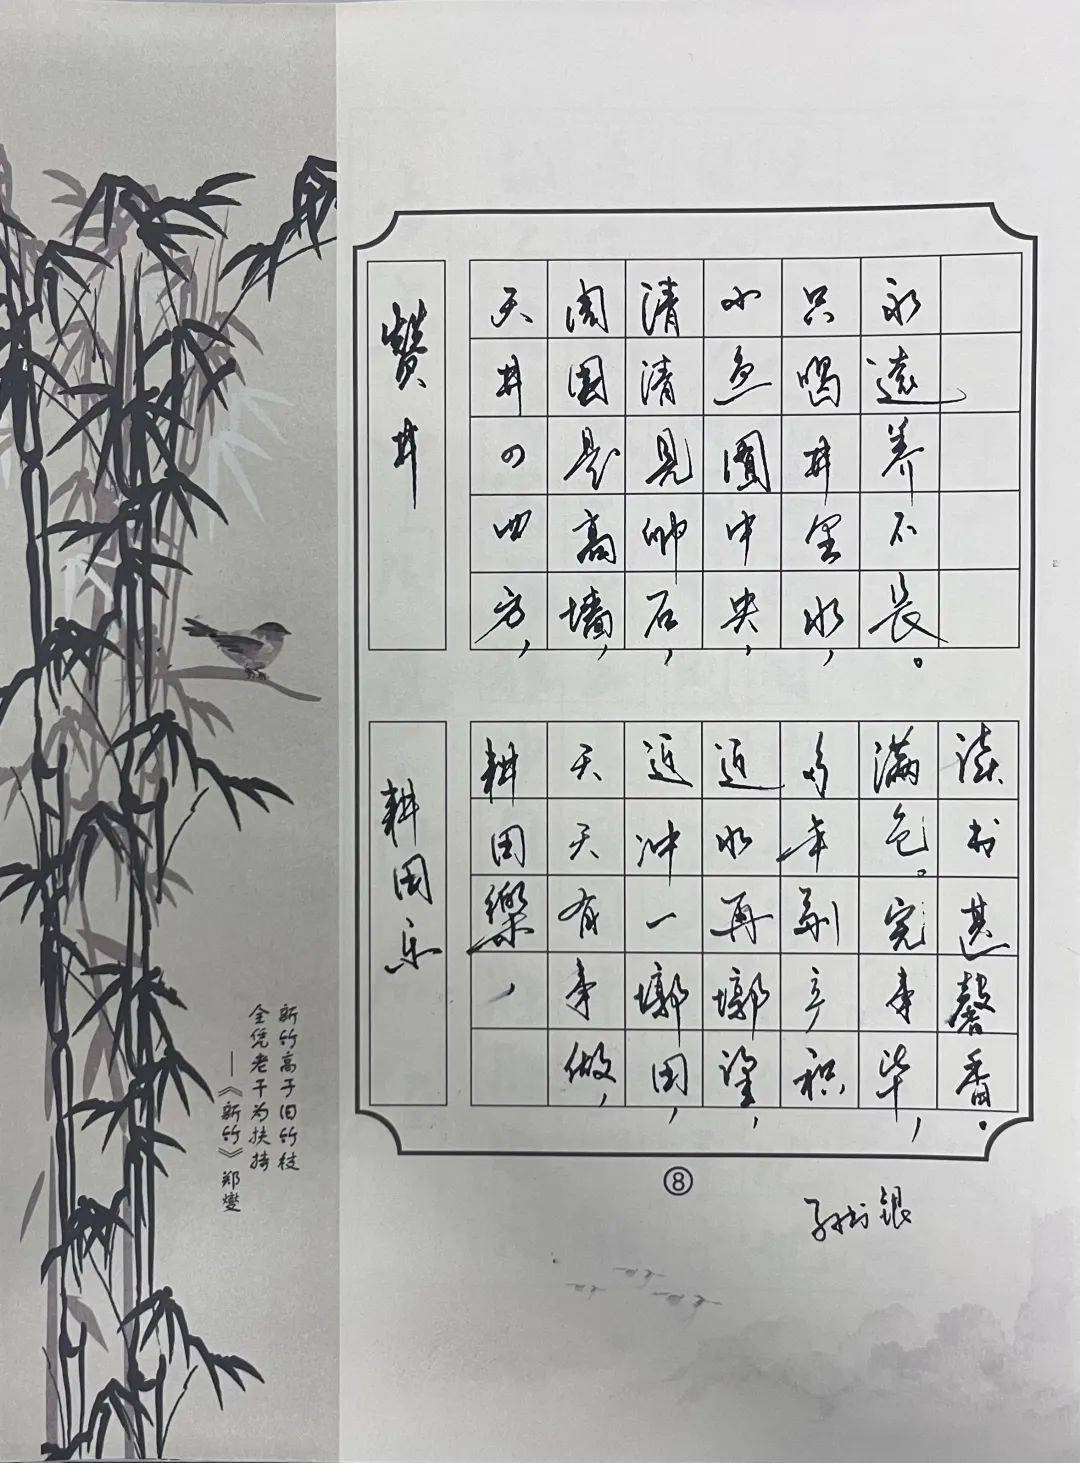 赞井
天井四四方，
周围是高墙，
清清见卵石，
小鱼中央，
只喝井里水，
永远养不长。
耕田乐
耕田樂，
天天有事做，
近冲一墩田，
近水再墩望，
多年副产积
满仓。完事毕，
读书甚馨香。
⑧
孙书银
新竹高于旧竹枝
全凭老干为扶持
——《新竹》郑燮